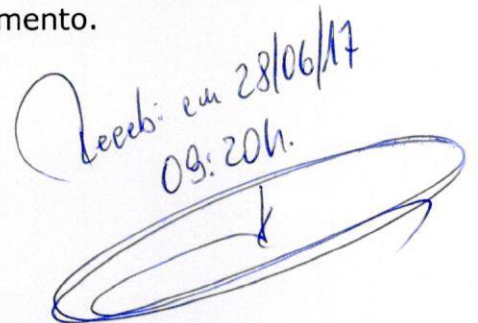 mento.
Recebi em 28/06/17
09:20h.